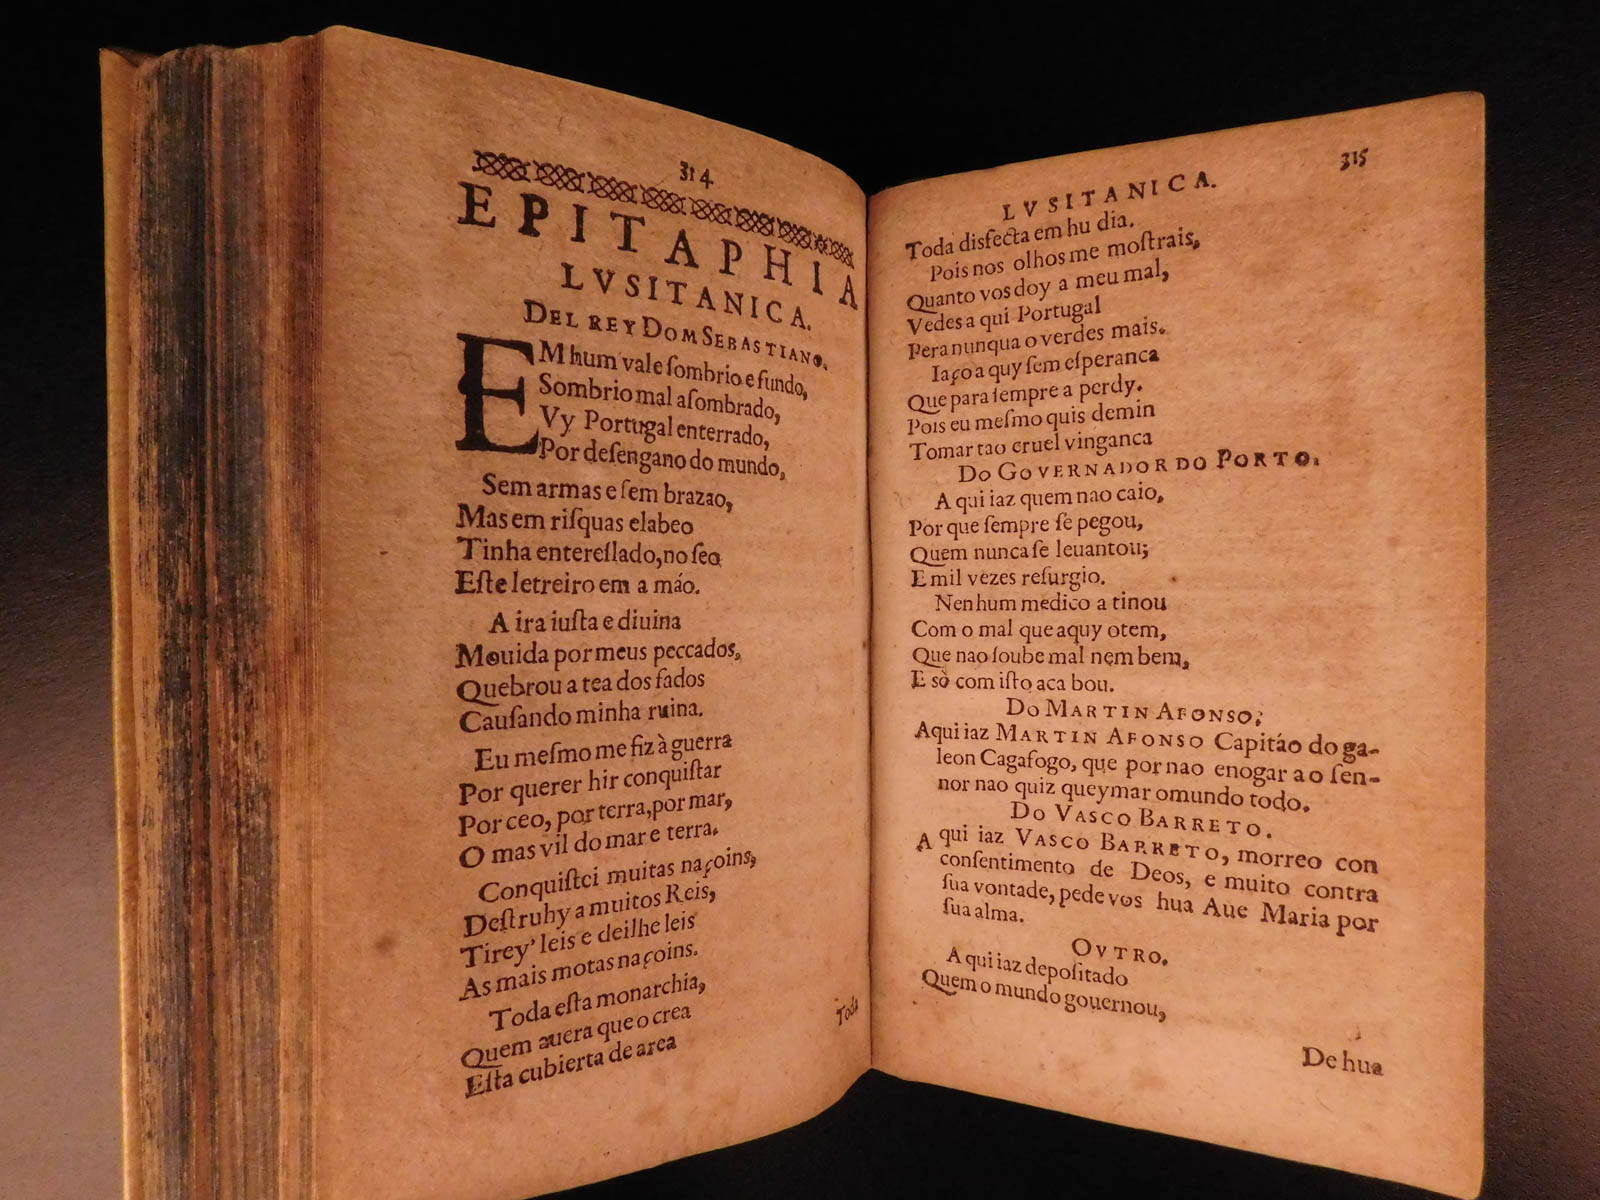 314
EPITAPHIA
LVSITANICA.
DEL REY DOM SEBASTIANO.
EM hum vale ſombrio e fundo,
Sombrio mal aſombrado,
Vy Portugal enterrado,
Por deſengano do mundo,
Sem armas e ſem brazao,
Mas em riſquas elabeo
Tinha entereſlado, no ſeo
Eſte letreiro em a máo.
A ira iuſta e diuina
Mouida por meus peccados,
Quebrou a tea dos fados
Cauſando minha ruina.
Eu meſmo me fiz à guerra
Por querer hir conquiſtar
Por ceo, por terra, por mar,
O mas vil do mar e terra.
Conquiſtei muitas naçoins,
Deſtruhy a muitos Reis,
Tirey' leis e deilhe leis
As mais motas naçoins.
Toda eſta monarchia,
Quem auera que o crea
Eſta cubierta de area
Toda
315
LVSITANICA.
Toda disfecta em hu dia.
Pois nos olhos me moſtrais,
Quanto vos doy a meu mal,
Vedes a qui Portugal
Pera nunqua o verdes mais.
Iaço a quy ſem eſperanca
Que para ſempre a perdy.
Pois eu meſmo quis demin
Tomar tao cruel vinganca
DO GOVERNADOR DO PORTO.
A qui iaz quem nao caio,
Por que ſempre ſe pegou,
Quem nunca ſe leuantou;
E mil vezes reſurgio.
Nenhum medico a tinou
Com o mal que aquy otem,
Que nao ſoube mal nem bem,
E sò com iſto aca bou.
DO MARTIN AFONSO;
Aqui iaz MARTIN AFONSO Capitáo do ga-
leon Cagafogo, que por nao enogar a o ſen-
nor nao quiz queymar omundo todo.
DO VASCO BARRETO.
A qui iaz VASCO BARRETO, morreo con
conſentimento de Deos, e muito contra
ſua vontade, pede vos hua Aue Maria por
ſua alma.
OVTRO.
A qui iaz depoſitado
Quem o mundo gouernou,
De hua